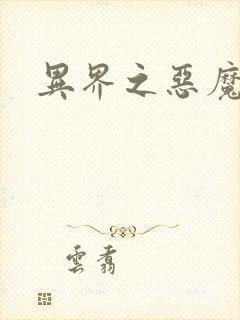 異界之惡魔
雲翥